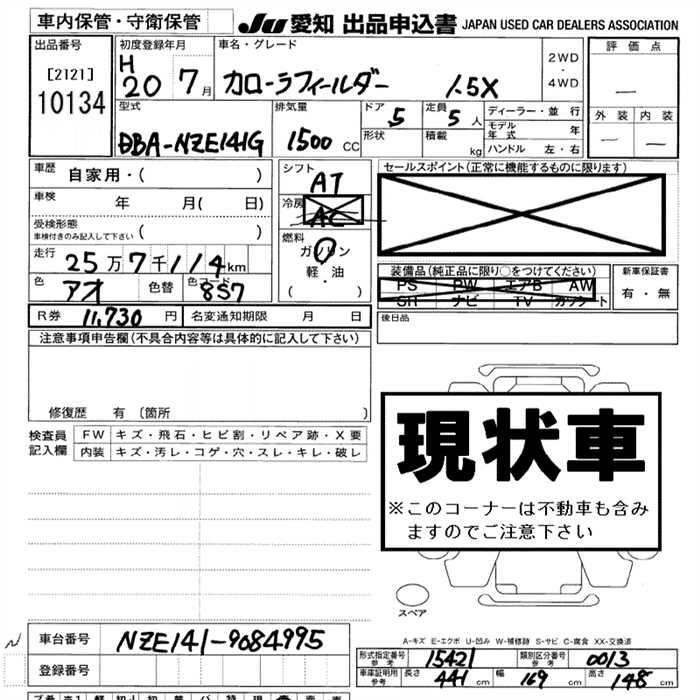 車内保管・守衛保管 JU愛知 出品申込書 JAPAN USED CAR DEALERS ASSOCIATION
出品番号
[2121]
10134
初度登録年月
H
20 7月
車名・グレード
カローラフィールダー 1.5X
2WD
・
4WD
評価点
—
外装 内装
— —
型式
DBA-NZE141G
排気量
1500 CC
ドア 5
形状
定員 5人
積載 kg
ディーラー・並行
モデル年式 年
ハンドル 左・右
車歴 自家用・( )
車検 年 月( 日)
受検形態
車検付きのみ記入して下さい ( )
走行 25万7千114km
色 アオ 色替 色コード 857
シフト
AT
冷房
AC
燃料
ガソリン
軽・油
( )
セールスポイント(正常に機能するものに限ります)
装備品(純正品に限り○をつけてください)
PS PW エアB AW
SH ナビ TV カセット
新車保証書
有・無
R券 11,730 円 名変通知期限 月 日
後日品
注意事項申告欄(不具合内容等は具体的に記入して下さい)
修復歴 有 〔箇所 〕
検査員
記入欄
FW キズ・飛石・ヒビ割・リペア跡・X要
内装 キズ・汚レ・コゲ・穴・スレ・キレ・破レ
現状車
※このコーナーは不動車も含み
ますのでご注意下さい
スペア
A-キズ E-エクボ U-凹み W-補修跡 S-サビ C-腐食 XX-交換済
車台番号 NZE141-9084995
登録番号
形式指定番号
参考 15421
類別区分番号
参考 0013
車庫証明用
参考 長さ 441 cm 幅 169 cm 高さ 148 cm